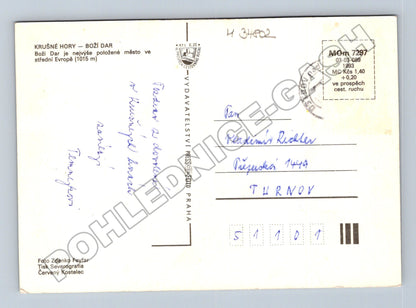 KRUŠNÉ HORY — BOŽÍ DAR
Boží Dar je nejvýše položené město ve
střední Evropě (1015 m)
H 34802
MOm 7297
01-03-089
1983
MC Kčs 1,40
+ 0,20
ve prospěch
cest. ruchu
VYDAVATELSTVÍ PRESSFOTO PRAHA
Pozdrav z dovolené
v Krušných horách
zasílají
Pan
Vladimír Richter
1449
TURNOV
5 1 1 0 1
Foto Zdenko Feyfar
Tisk Severografia
Červený Kostelec
POHLEDNICE-GACH